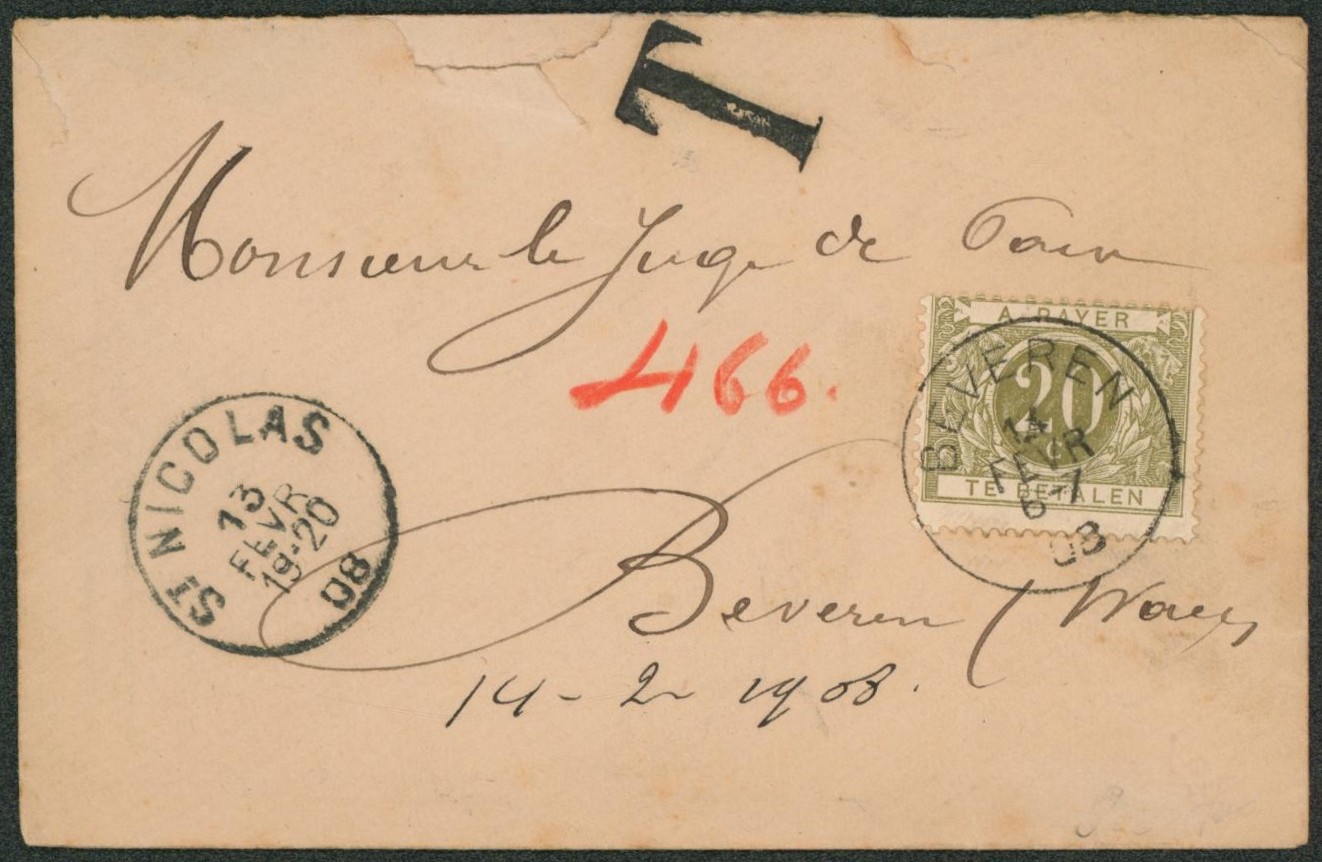 T
Monsieur le Juge de Paix
466.
A PAYER
20
c
TE BETALEN
BEVEREN
14
FEVR
6-7
08
ST NICOLAS
13
FEVR
19-20
08
Beveren (Waes)
14-2-1908.